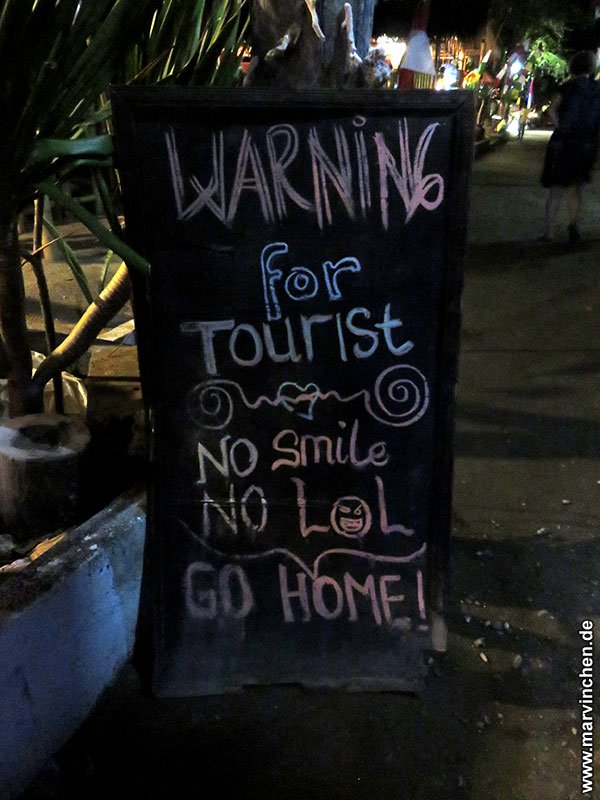 WARNiNG
for
Tourist
NO Smile
NO LOL
GO HOME!
www.marvinchen.de